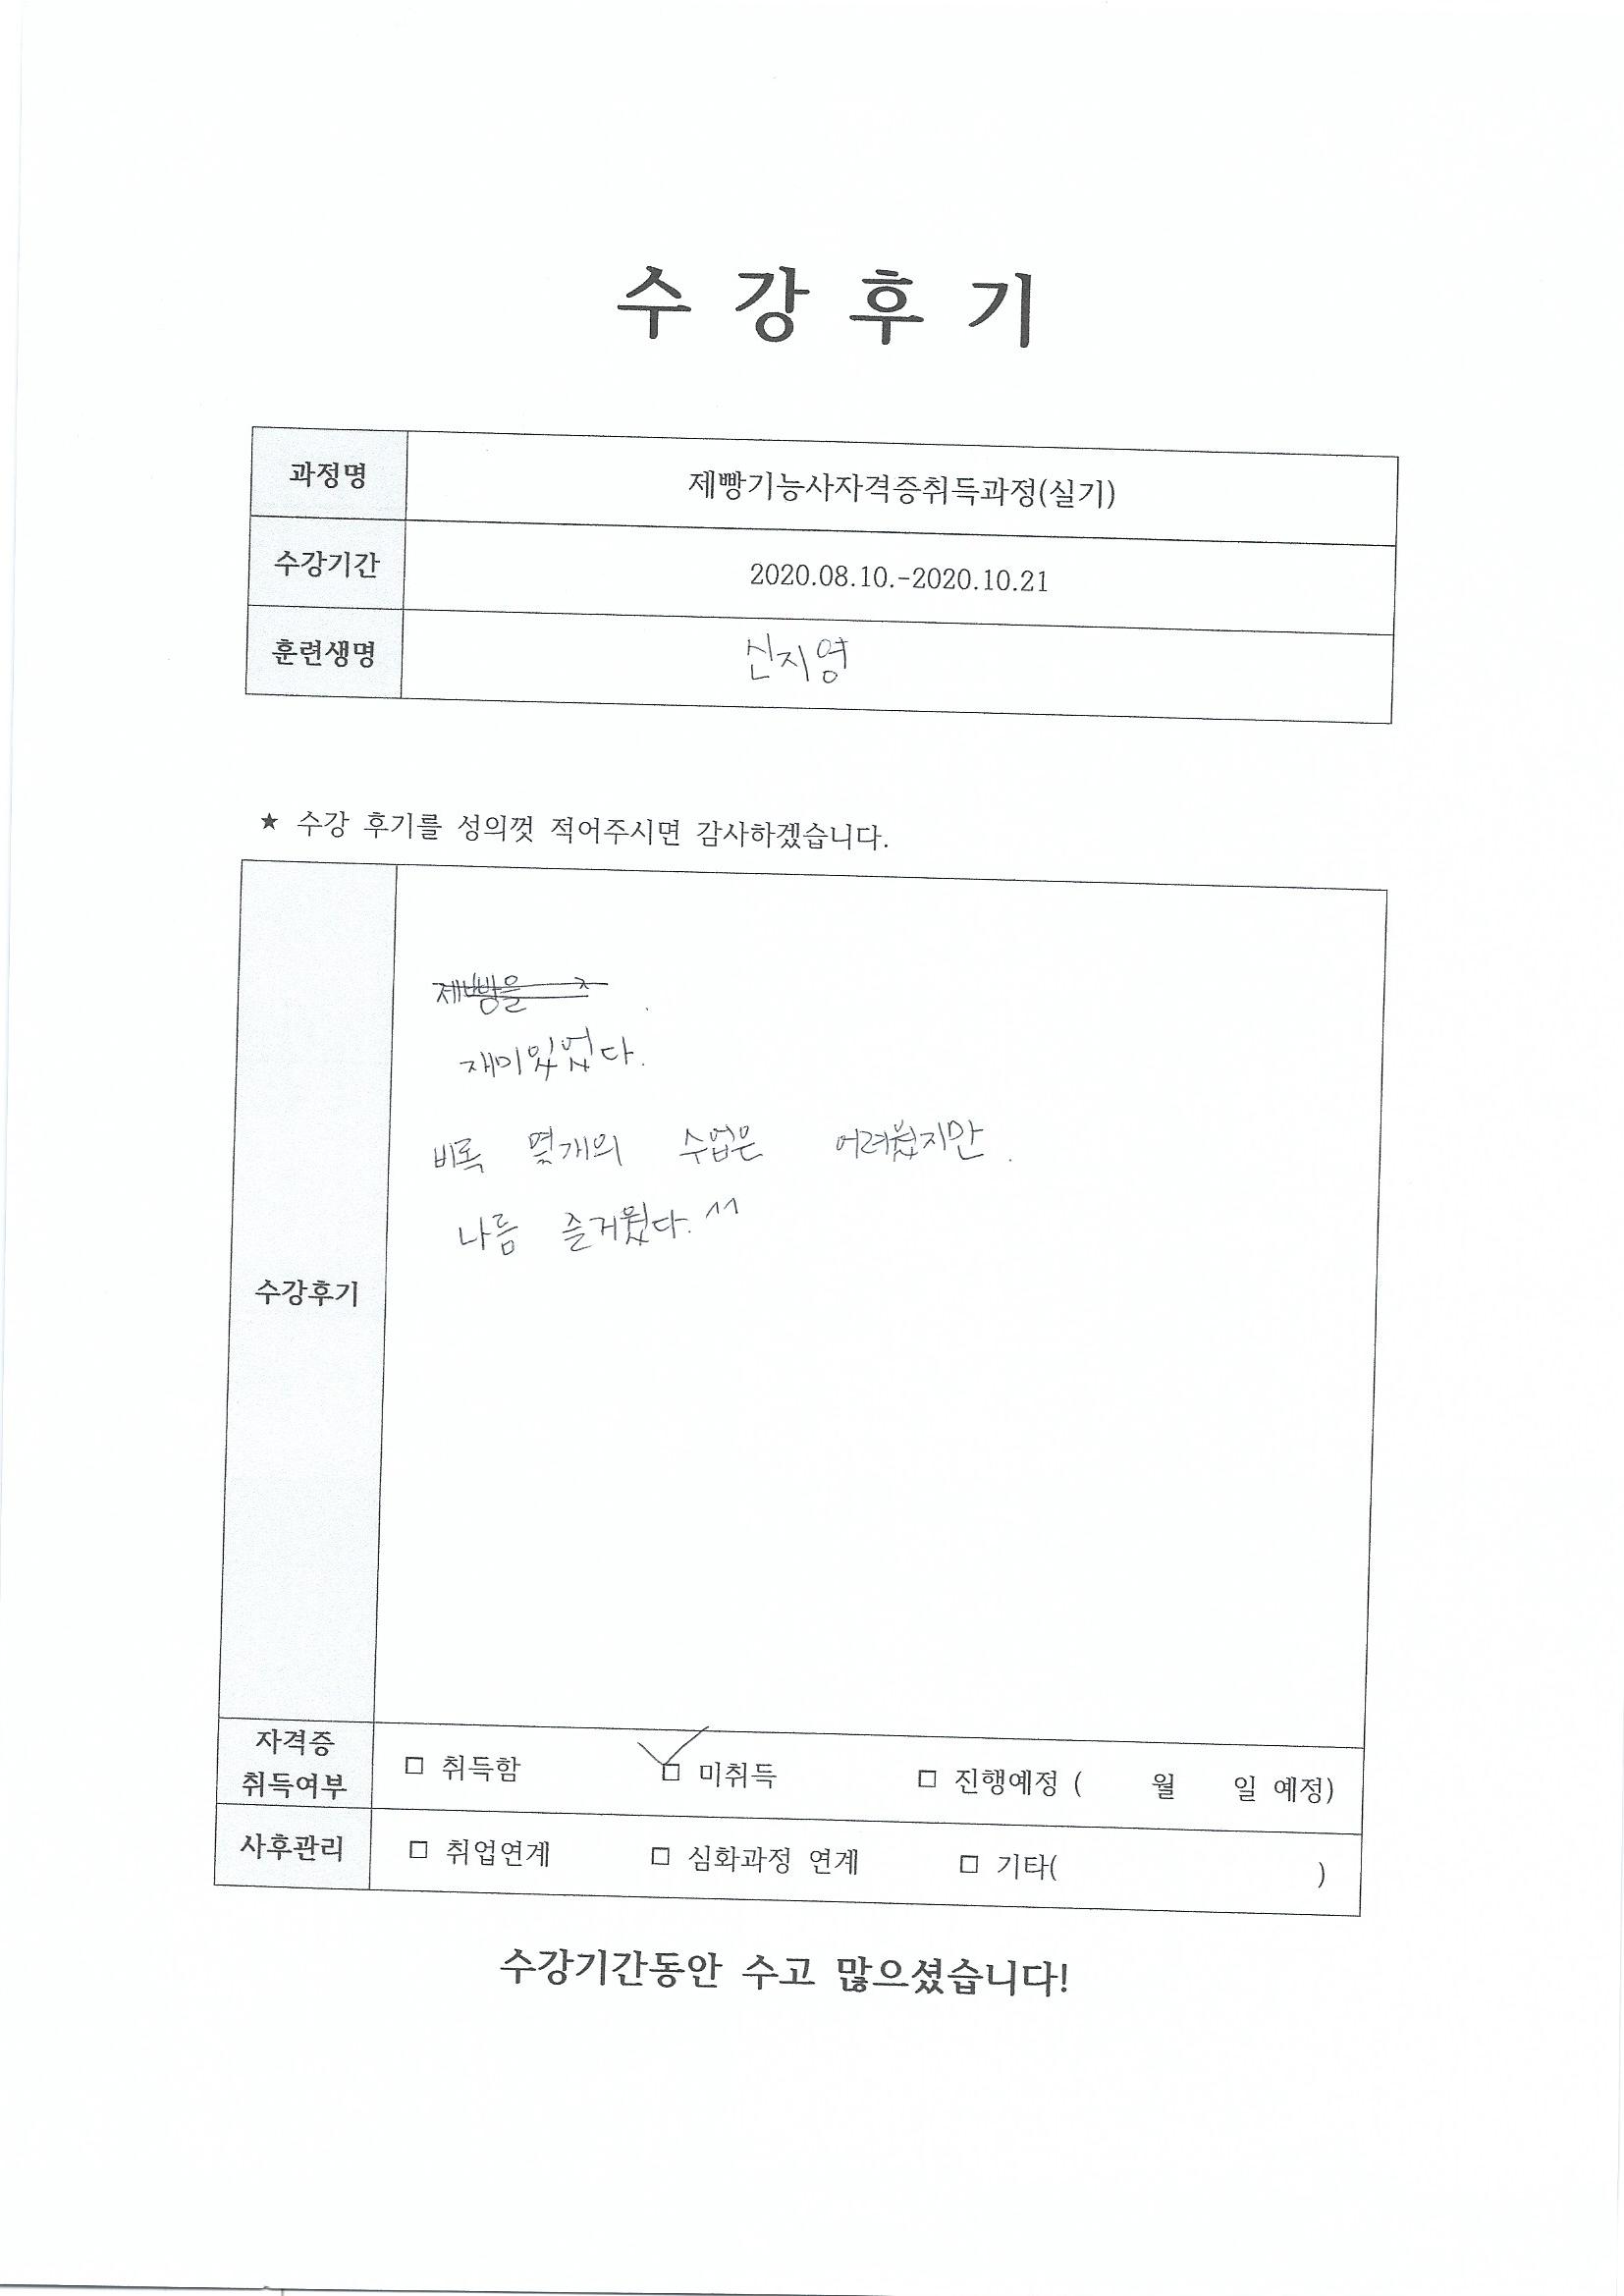 수 강 후 기
과정명 제빵기능사자격증취득과정(실기)
수강기간 2020.08.10.-2020.10.21
훈련생명 신지영
★ 수강 후기를 성의껏 적어주시면 감사하겠습니다.
제빵을 ㅈ
재미있었다.
비록 몇개의 수업은 어려웠지만
나름 즐거웠다. ^^
수강후기
자격증
취득여부 □ 취득함 □ 미취득 □ 진행예정 ( 월 일 예정)
사후관리 □ 취업연계 □ 심화과정 연계 □ 기타( )
수강기간동안 수고 많으셨습니다!